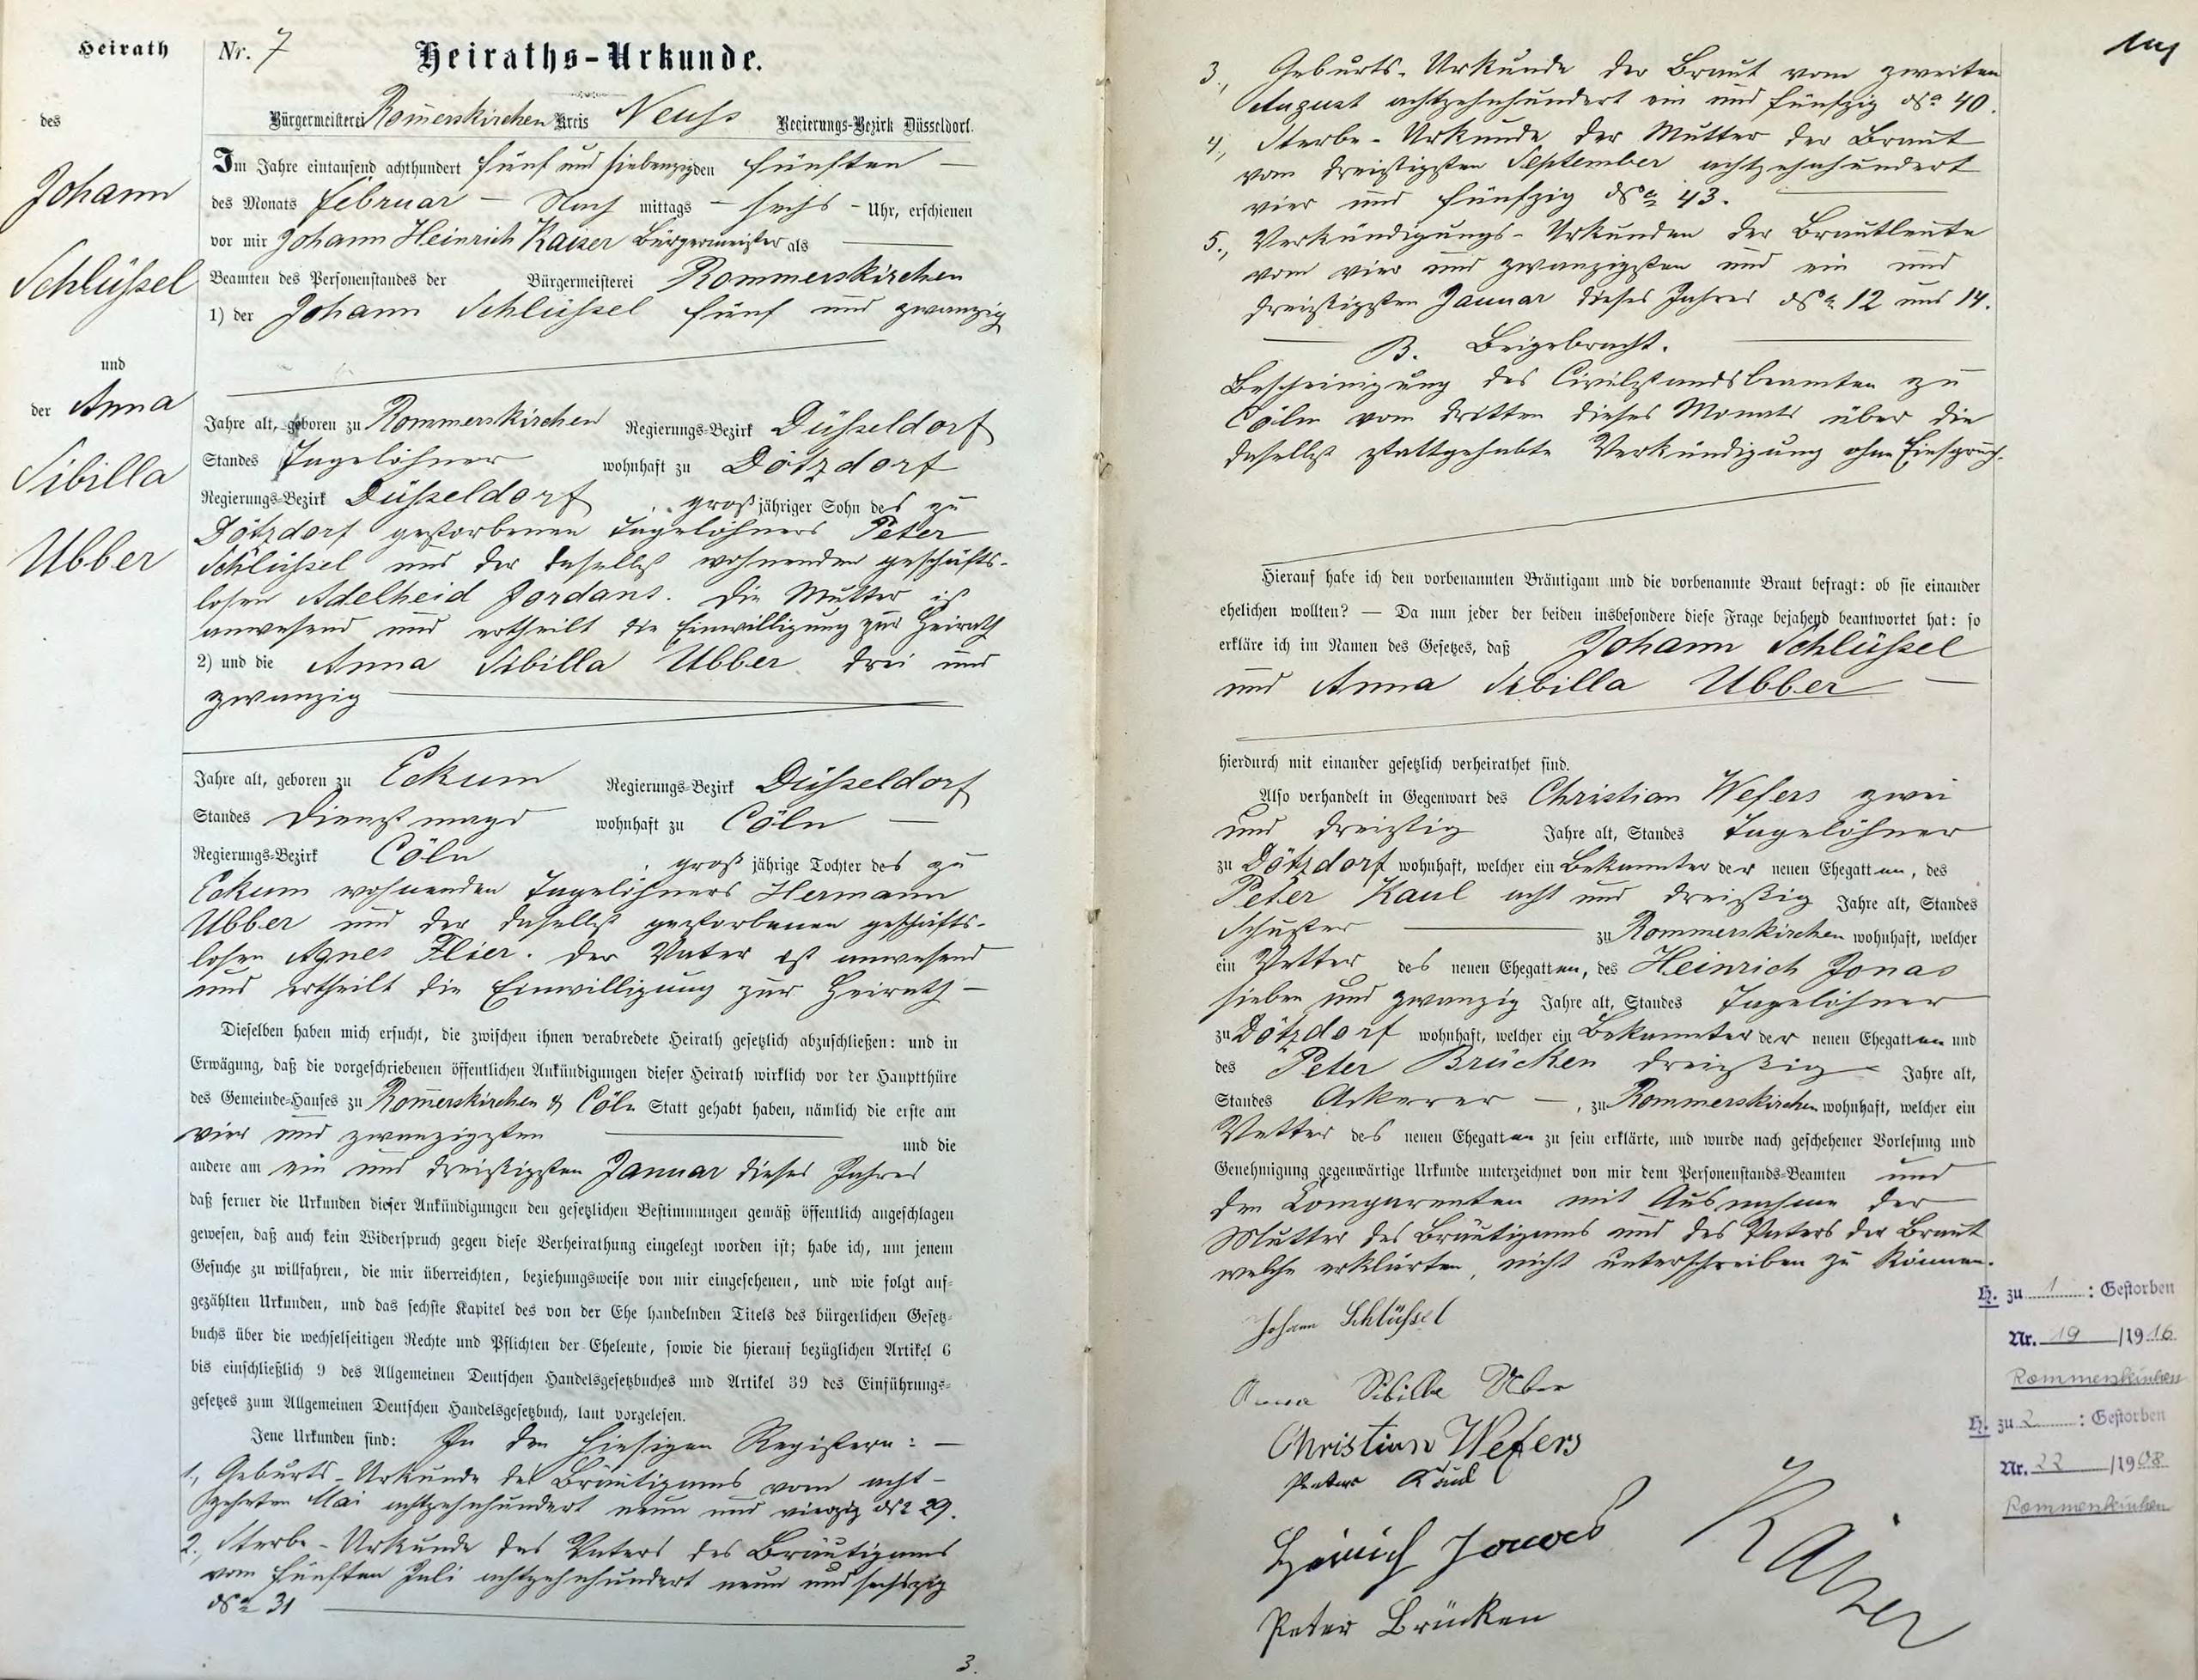 Heirath
des
Johann
Schlüssel
und
der Anna
Sibilla
Ubber
Nr. 7 Heiraths-Urkunde.
Bürgermeisterei Rom̄erskirchen Kreis Neuss Regierungs-Bezirk Düsseldorf.
Im Jahre eintausend achthundert fünf und siebenzig den fünften —
des Monats Februar — Nach mittags — sechs — Uhr, erschienen
vor mir Johann Heinrich Kaiser Bürgermeister als
Beamten des Personenstandes der Bürgermeisterei Rommerskirchen
1) der Johann Schlüssel fünf und zwanzig
Jahre alt, geboren zu Rommerskirchen Regierungs-Bezirk Düsseldorf
Standes Tagelöhner wohnhaft zu Dötzdorf
Regierungs-Bezirk Düsseldorf, großjähriger Sohn des zu
Dötzdorf gestorbenen Tagelöhners Peter
Schlüssel und der daselbst wohnenden geschäfts-
losen Adelheid Jordans. Die Mutter ist
anwesend und ertheilt die Einwilligung zur Heirath
2) und die Anna Sibilla Ubber drei und
zwanzig
Jahre alt, geboren zu Eckum Regierungs-Bezirk Düsseldorf
Standes Dienstmagd wohnhaft zu Cöln —
Regierungs-Bezirk Cöln, großjährige Tochter des zu
Eckum wohnenden Tagelöhners Hermann
Ubber und der daselbst gestorbenen geschäfts-
losen Agnes Flier. Der Vater ist anwesend
und ertheilt die Einwilligung zur Heirath —
Dieselben haben mich ersucht, die zwischen ihnen verabredete Heirath gesetzlich abzuschließen: und in
Erwägung, daß die vorgeschriebenen öffentlichen Ankündigungen dieser Heirath wirklich vor der Hauptthüre
des Gemeinde-Hauses zu Rom̄erskirchen & Cöln Statt gehabt haben, nämlich die erste am
vier und zwanzigsten und die
andere am ein und dreißigsten Januar dieses Jahres
daß ferner die Urkunden dieser Ankündigungen den gesetzlichen Bestimmungen gemäß öffentlich angeschlagen
gewesen, daß auch kein Widerspruch gegen diese Verheirathung eingelegt worden ist; habe ich, um jenem
Gesuche zu willfahren, die mir überreichten, beziehungsweise von mir eingesehenen, und wie folgt auf-
gezählten Urkunden, und das sechste Kapitel des von der Ehe handelnden Titels des bürgerlichen Gesetz-
buchs über die wechselseitigen Rechte und Pflichten der Eheleute, sowie die hierauf bezüglichen Artikel 6
bis einschließlich 9 des Allgemeinen Deutschen Handelsgesetzbuches und Artikel 39 des Einführungs-
gesetzes zum Allgemeinen Deutschen Handelsgesetzbuch, laut vorgelesen.
Jene Urkunden sind: In den hiesigen Registern: —
1., Geburts-Urkunde des Bräutigams vom acht-
zehnten Mai achtzehnhundert neun und vierzig No 29.
2., Sterbe-Urkunde des Vaters des Bräutigams
vom fünften Juli achtzehnhundert neun und sechszig
No 31
3.
3., Geburts-Urkunde der Braut vom zweiten
August achtzehnhundert ein und fünfzig No 40.
4., Sterbe-Urkunde der Mutter der Braut
vom dreißigsten September achtzehnhundert
vier und fünfzig No 43.
5., Verkündigungs-Urkunden der Brautleute
vom vier und zwanzigsten und ein und
dreißigsten Januar dieses Jahres No 12 und 14.
B. Beigebracht.
Bescheinigung des Civilstandsbeamten zu
Cöln vom dritten dieses Monats über die
daselbst stattgehabte Verkündigung ohne Einspruch.
Hierauf habe ich den vorbenannten Bräutigam und die vorbenannte Braut befragt: ob sie einander
ehelichen wollten? — Da nun jeder der beiden insbesondere diese Frage bejahend beantwortet hat: so
erkläre ich im Namen des Gesetzes, daß Johann Schlüssel
und Anna Sibilla Ubber —
hierdurch mit einander gesetzlich verheirathet sind.
Also verhandelt in Gegenwart des Christian Wefers zwei
und dreißig Jahre alt, Standes Tagelöhner
zu Dötzdorf wohnhaft, welcher ein Bekannter der neuen Ehegatten, des
Peter Kaul acht und dreißig Jahre alt, Standes
Schuster zu Rommerskirchen wohnhaft, welcher
ein Vetter des neuen Ehegatten, des Heinrich Jonas
sieben und zwanzig Jahre alt, Standes Tagelöhner
zu Dötzdorf wohnhaft, welcher ein Bekannter der neuen Ehegatten und
des Peter Brücken dreißig Jahre alt,
Standes Ackerer —, zu Rommerskirchen wohnhaft, welcher ein
Vetter des neuen Ehegatten zu sein erklärte, und wurde nach geschehener Vorlesung und
Genehmigung gegenwärtige Urkunde unterzeichnet von mir dem Personenstands-Beamten und
den Comparenten mit Ausnahme der
Mutter des Bräutigams und des Vaters der Braut
welche erklärten, nicht unterschreiben zu können.
Johann Schlüssel
Anna Sibilla Uber
Christian Wefers
Peter Kaul
Heinrich Jonas
Peter Brücken
Kaiser
H. zu 1 : Gestorben
Nr. 19 /1916
Rommerskirchen
H. zu 2 : Gestorben
Nr. 22 /1908
Rommerskirchen